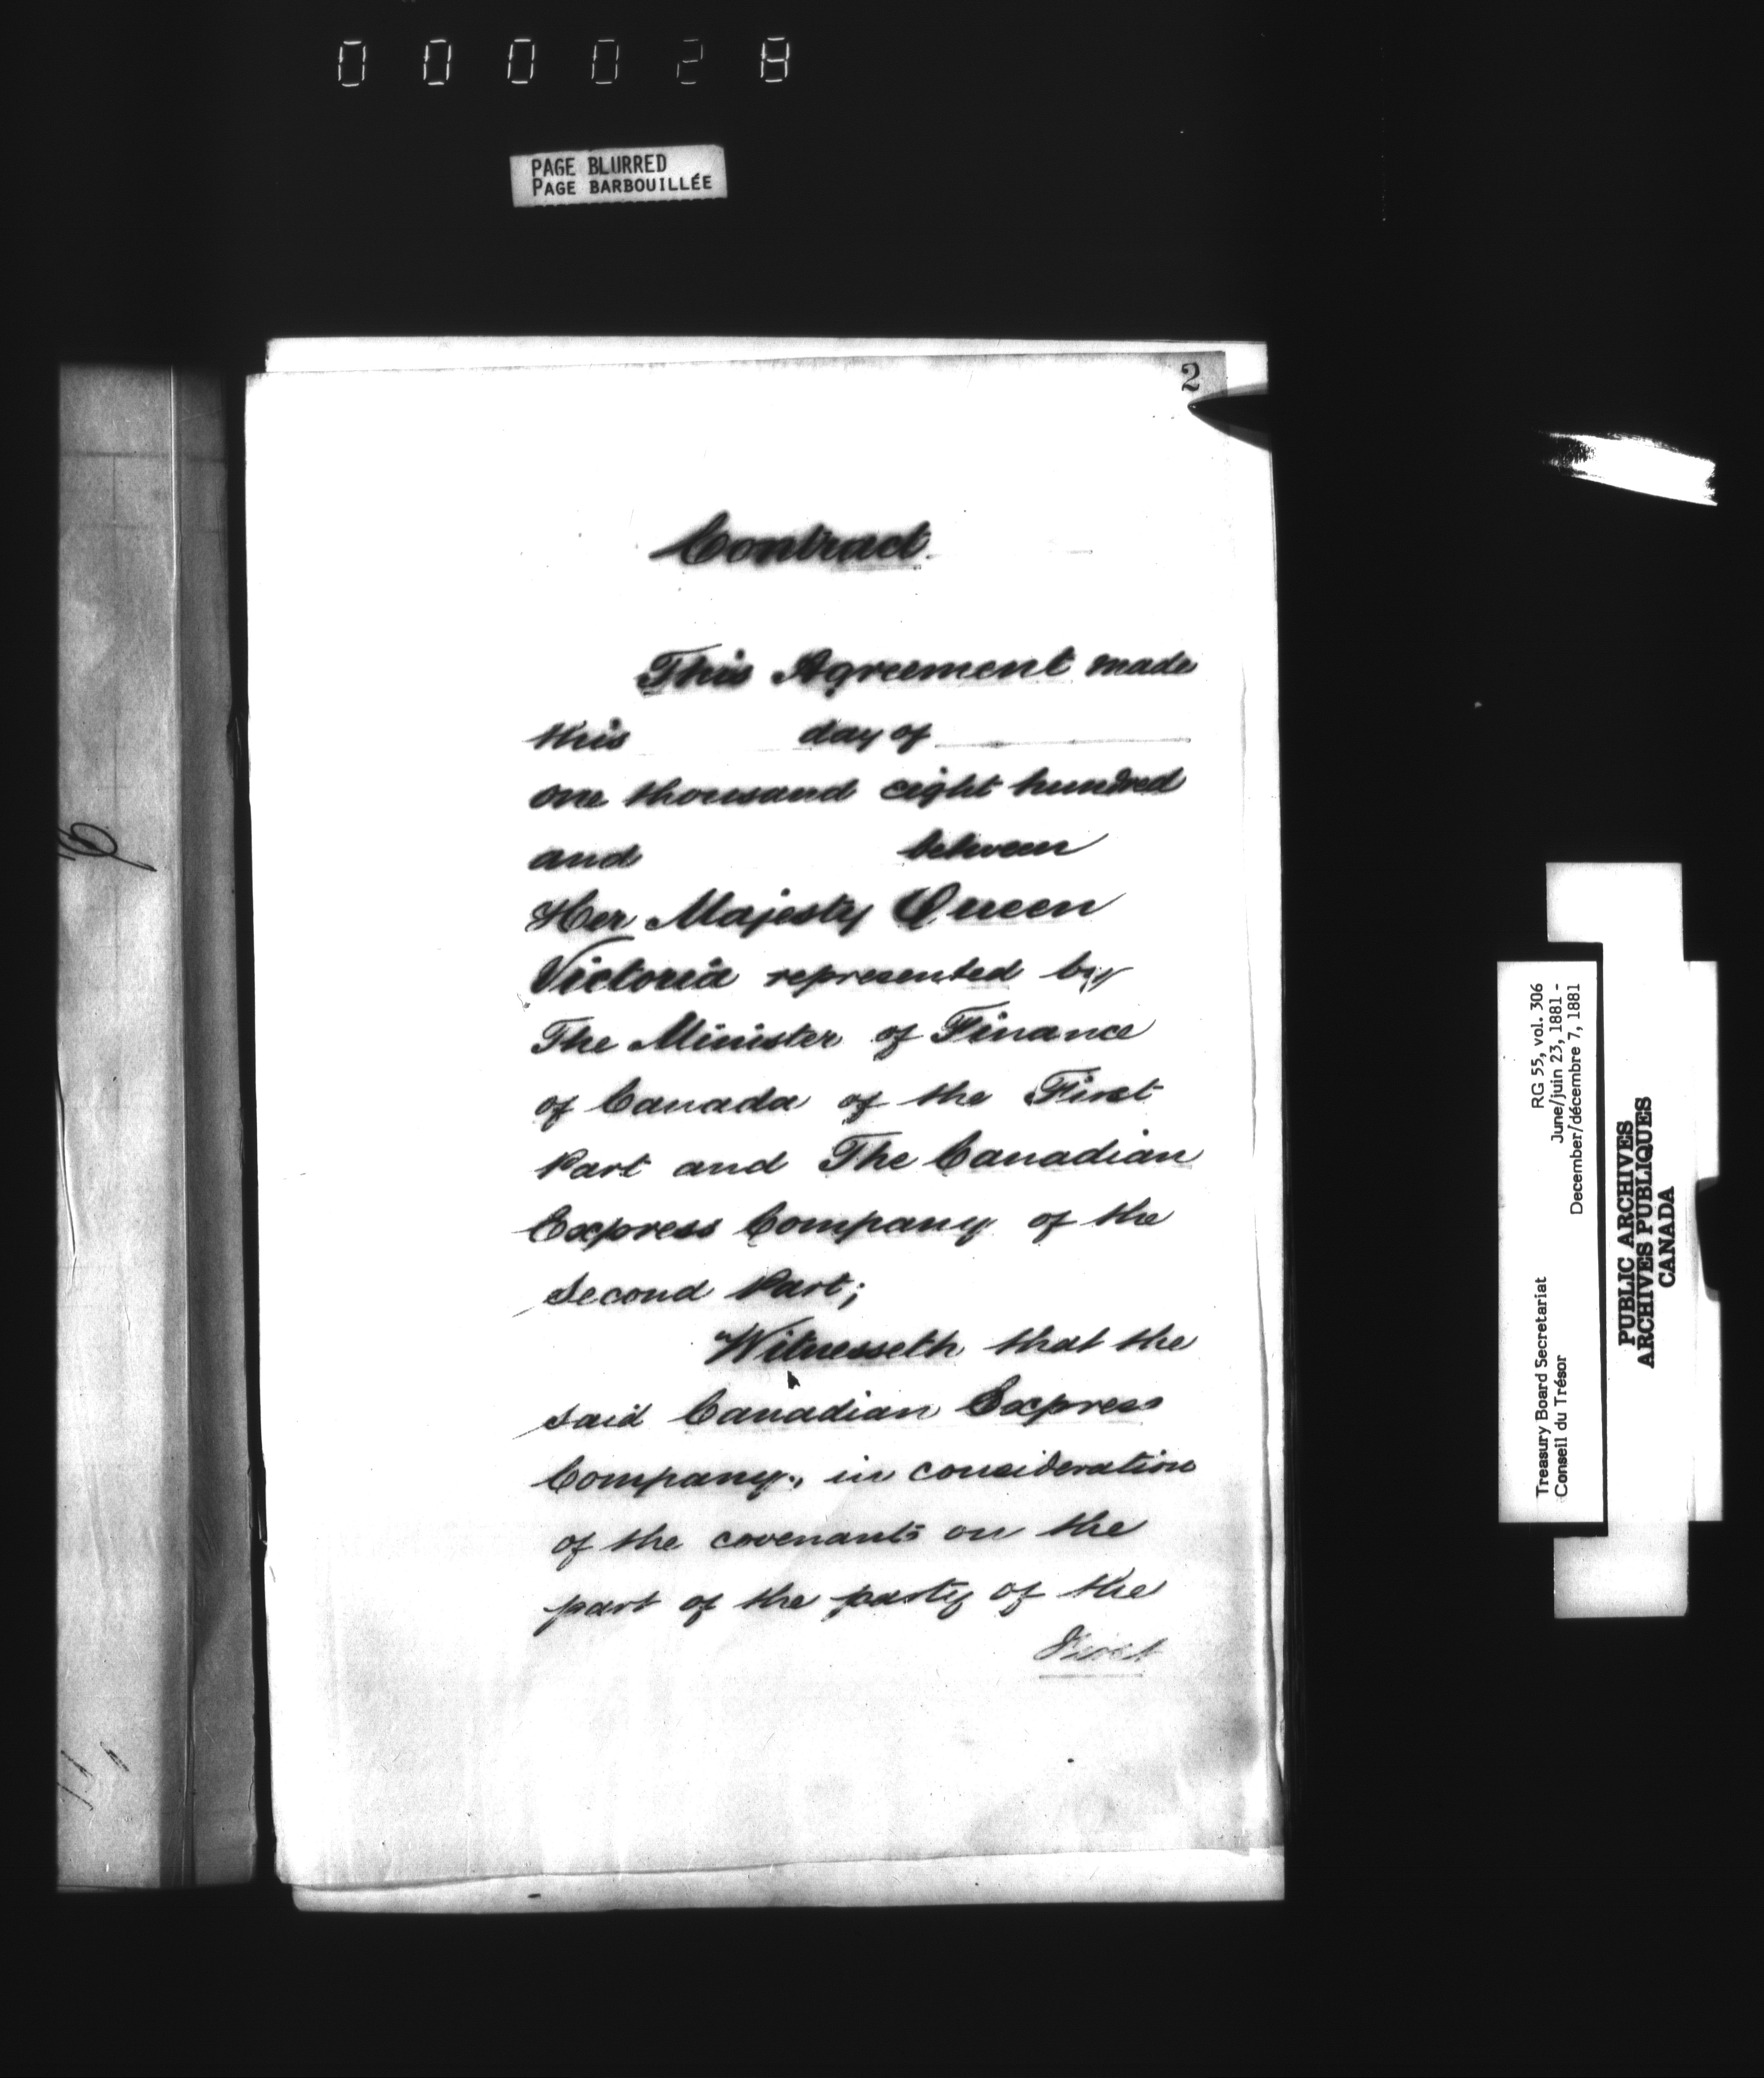 0 0 0 0 2 8
PAGE BLURRED
PAGE BARBOUILLÉE
2
Contract.
This Agreement made
this day of
one thousand eight hundred
and between
Her Majesty Queen
Victoria represented by
The Minister of Finance
of Canada of the First
Part and The Canadian
Express Company of the
Second Part;
Witnesseth that the
said Canadian Express
Company, in consideration
of the covenants on the
part of the party of the
First
Treasury Board Secretariat RG 55, vol. 306
Conseil du Trésor June/juin 23, 1881 -
December/décembre 7, 1881
PUBLIC ARCHIVES
ARCHIVES PUBLIQUES
CANADA